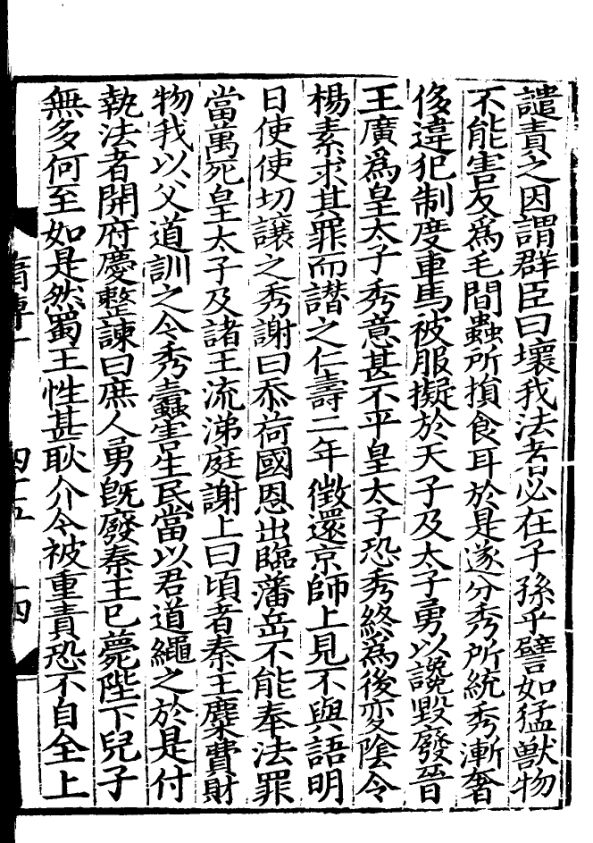 譴責之因謂群臣曰壞我法者必在子孫乎譬如猛獸物
不能害反爲毛間蟲所損食耳於是遂分秀所統秀漸奢
侈違犯制度車馬被服擬於天子及太子勇以讒毀廢晉
王廣爲皇太子秀意甚不平皇太子恐秀終爲後變陰令
楊素求其罪而譖之仁壽二年徵還京師上見不與語明
日使使切讓之秀謝曰忝荷國恩出臨藩岳不能奉法罪
當萬死皇太子及諸王流涕庭謝上曰頃者秦王糜費財
物我以父道訓之今秀蠹害生民當以君道繩之於是付
執法者開府慶整諫曰庶人勇旣廢秦王已薨陛下兒子
無多何至如是然蜀王性甚耿介今被重責恐不自全上
四十五 十四